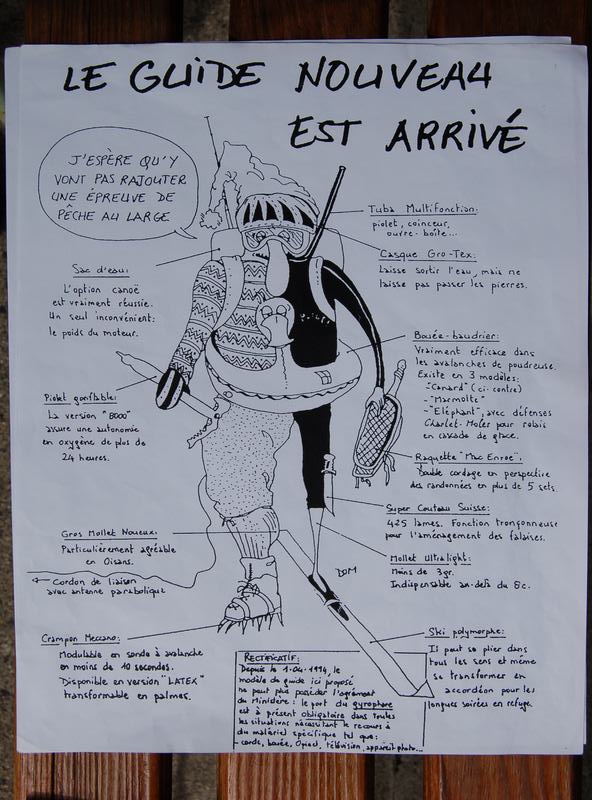 LE GUIDE NOUVEAU
EST ARRIVÉ
J'ESPÈRE QU'Y
VONT PAS RAJOUTER
UNE ÉPREUVE DE
PÊCHE AU LARGE
Tuba Multifonction:
piolet, coinceur,
ouvre-boîte...
Casque Gro-Tex:
Laisse sortir l'eau, mais ne
laisse pas passer les pierres.
Sac d'eau:
L'option canoë
est vraiment réussie.
Un seul inconvénient:
le poids du moteur.
Bouée-baudrier:
Vraiment efficace dans
les avalanches de poudreuse.
Existe en 3 modèles:
-"Canard" (ci-contre)
-"Marmotte"
-"Eléphant", avec défenses
Charlet-Moser pour relais
en cascade de glace.
Piolet gonflable:
La version "8000"
assure une autonomie
en oxygène de plus de
24 heures.
Raquette "Mac Enroe":
Double cordage en perspective
des randonnées en plus de 5 sets.
Super Couteau Suisse:
425 lames. Fonction tronçonneuse
pour l'aménagement des falaises.
Gros Mollet Noueux:
Particulièrement agréable
en Oisans.
Mollet Ultralight:
Moins de 3gr.
Indispensable au-delà du 8c.
Cordon de liaison
avec antenne parabolique
DOM
Crampon Meccano:
Modulable en sonde à avalanche
en moins de 10 secondes.
Disponible en version "LATEX"
transformable en palmes.
Ski polymorphe:
Il peut se plier dans
tous les sens et même
se transformer en
accordéon pour les
longues soirées en refuge.
RECTIFICATIF:
Depuis le 1-04-1994, le
modèle de guide ici proposé
ne peut plus posséder l'agrément
du Ministère: le port du gyrophare
est à présent obligatoire dans toutes
les situations nécessitant le recours à
du matériel spécifique tel que:
corde, bouée, Opinel, télévision, appareil photo...